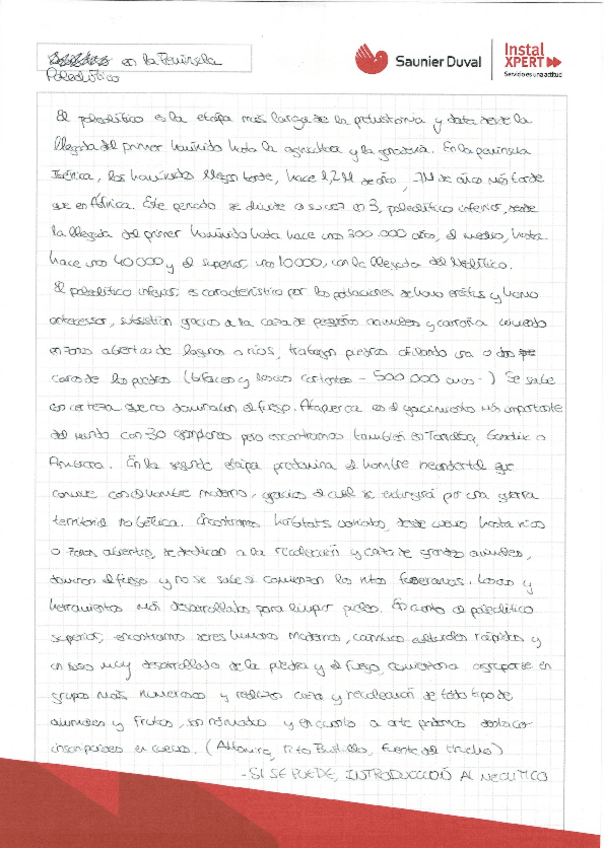 en la Península
Paleolítico
Saunier Duval
Instal
XPERT
Servicio es una actitud
El paleolítico es la etapa más larga de la prehistoria y data desde la
llegada del primer homínido hasta la agricultura y la ganadería. En la península
Ibérica, los homínidos llegan tarde, hace 1,2M de años,
que en África. Este periodo se divide a su vez en 3, paleolítico inferior, desde
la llegada del primer homínido hasta hace unos 300.000 años, el medio, hasta
hace unos 40000 y el superior, unos 10000, con la llegada del Neolítico.
El paleolítico inferior, es característico por las poblaciones de homo erectus y homo
antecessor, subsistían gracias a la caza de pequeños animales y carroña viviendo
en zonas abiertas de lagunas o ríos, trabajan piedras afilando una o dos
caras de las piedras (bifaces y lascas cortantes - 500 000 años -) Se sabe
con certeza que no dominaban el fuego. Atapuerca es el yacimiento más importante
del mundo con 30 ejemplares pero encontramos también en
En la segunda etapa predomina el hombre neandertal que
convive con el hombre moderno, gracias al cual se extinguirá por una guerra
territorial no bélica. Encontramos hábitats variados, desde cuevas hasta ríos
o zonas abiertas, se dedican a la recolección y caza de grandes animales,
dominan el fuego y no se sabe si comienzan los ritos funerarios. Lascas y
herramientas más desarrolladas para limpiar pieles. En cuanto al paleolítico
superior, encontramos seres humanos modernos, cambios culturales rápidos y
un uso muy desarrollado de la piedra y el fuego, agruparse en
grupos más numerosos y realizan caza y recolección de todo tipo de
animales y frutos, son nómadas y en cuanto a arte podemos destacar
en cuevas. (Altamira, Tito Bustillo, Fuente del Trucho)
-SI SE PUEDE, INTRODUCCIÓN AL NEOLITICO